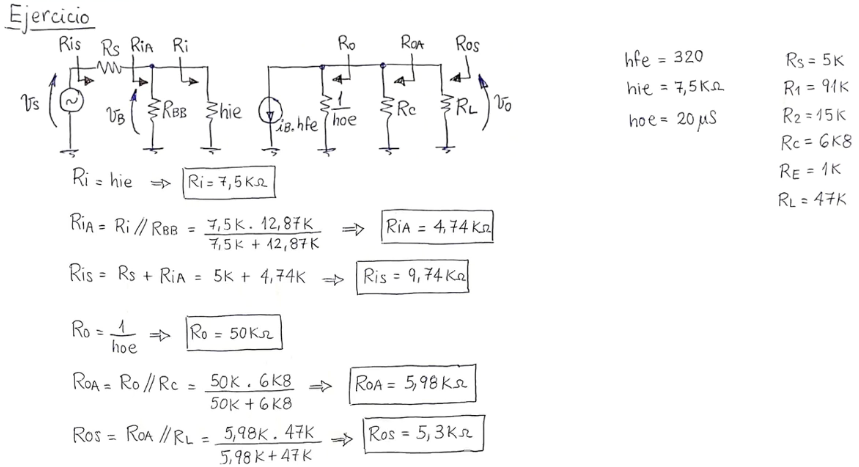 Ejercicio
Ris Rs RiA Ri Ro RoA Ros
vs vB RBB hie iB.hfe 1/hoe Rc RL vo
hfe = 320
hie = 7,5KΩ
hoe = 20 μS
Rs = 5K
R1 = 91K
R2 = 15K
Rc = 6K8
RE = 1K
RL = 47K
Ri = hie ⇒ Ri = 7,5KΩ
RiA = Ri // RBB = 7,5K . 12,87K / 7,5K + 12,87K ⇒ RiA = 4,74KΩ
Ris = Rs + RiA = 5K + 4,74K ⇒ Ris = 9,74KΩ
Ro = 1/hoe ⇒ Ro = 50KΩ
RoA = Ro // Rc = 50K . 6K8 / 50K + 6K8 ⇒ RoA = 5,98KΩ
Ros = RoA // RL = 5,98K . 47K / 5,98K + 47K ⇒ Ros = 5,3KΩ